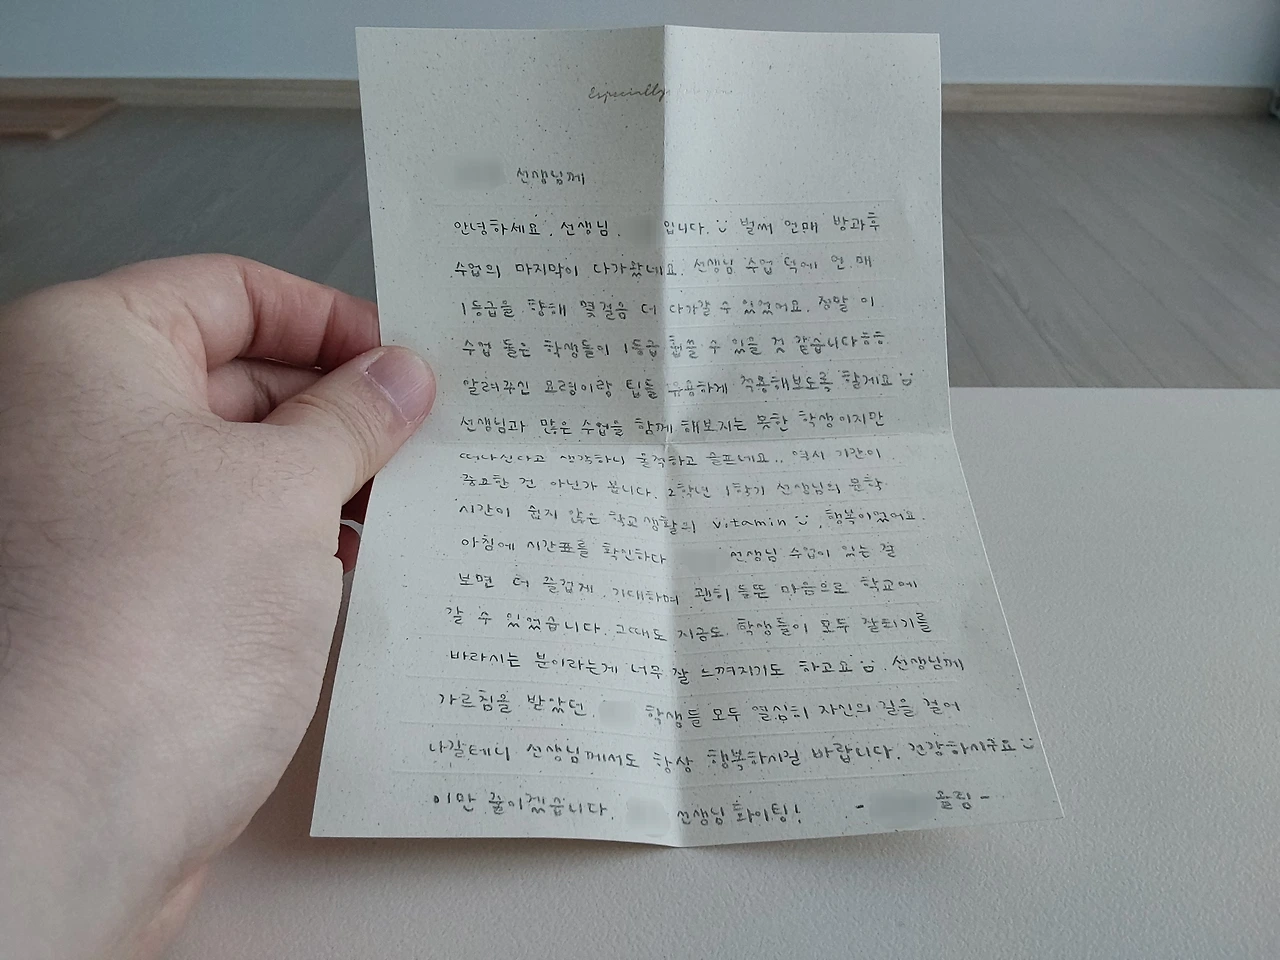 Especially for you
선생님께
안녕하세요. 선생님. 입니다. 벌써 언매 방과후
수업의 마지막이 다가왔네요. 선생님 수업 덕에 언매
1등급을 향해 몇걸음 더 다가갈 수 있었어요. 정말 이
수업 들은 학생들이 1등급 휩쓸 수 있을 것 같습니다ㅎㅎ
알려주신 요령이랑 팁들 유용하게 적용해보도록 할게요
선생님과 많은 수업을 함께 해보지는 못한 학생이지만
떠나신다고 생각하니 울적하고 슬프네요.. 역시 기간이
중요한 건 아닌가 봅니다. 2학년 1학기 선생님의 문학
시간이 쉽지 않은 학교생활의 vitamin, 행복이었어요.
아침에 시간표를 확인하다 선생님 수업이 있는 걸
보면 더 즐겁게, 기대하며 괜히 들뜬 마음으로 학교에
갈 수 있었습니다. 그때도 지금도, 학생들이 모두 잘되기를
바라시는 분이라는게 너무 잘 느껴지기도 하고요. 선생님께
가르침을 받았던 학생들 모두 열심히 자신의 길을 걸어
나갈테니 선생님께서도 항상 행복하시길 바랍니다. 건강하시구요
이만 줄이겠습니다. 선생님 화이팅! - 올림 -